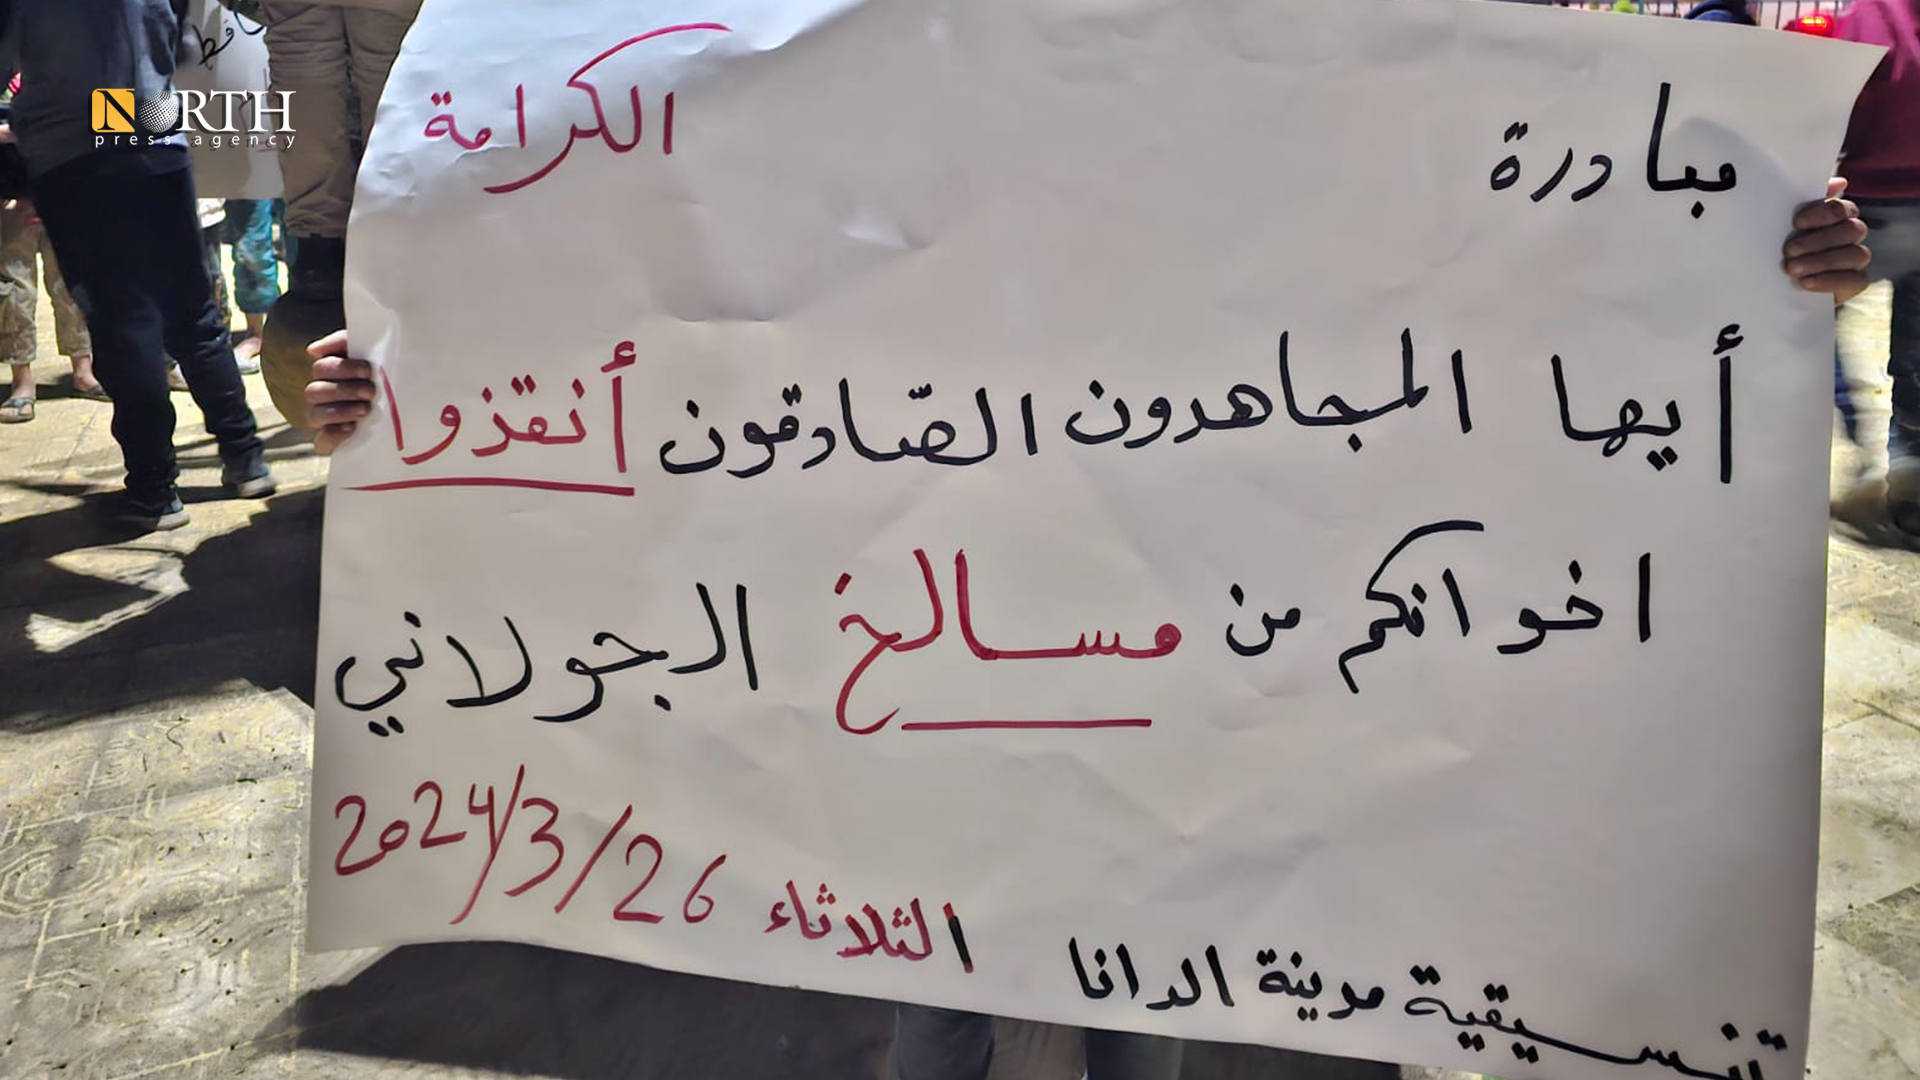 NORTH
press agency
مبادرة الكرامة
أيها المجاهدون الصّادقون أنقذوا
اخوانكم من مسالخ الجولاني
الثلاثاء 26/3/2024
تنسيقية مدينة الدانا